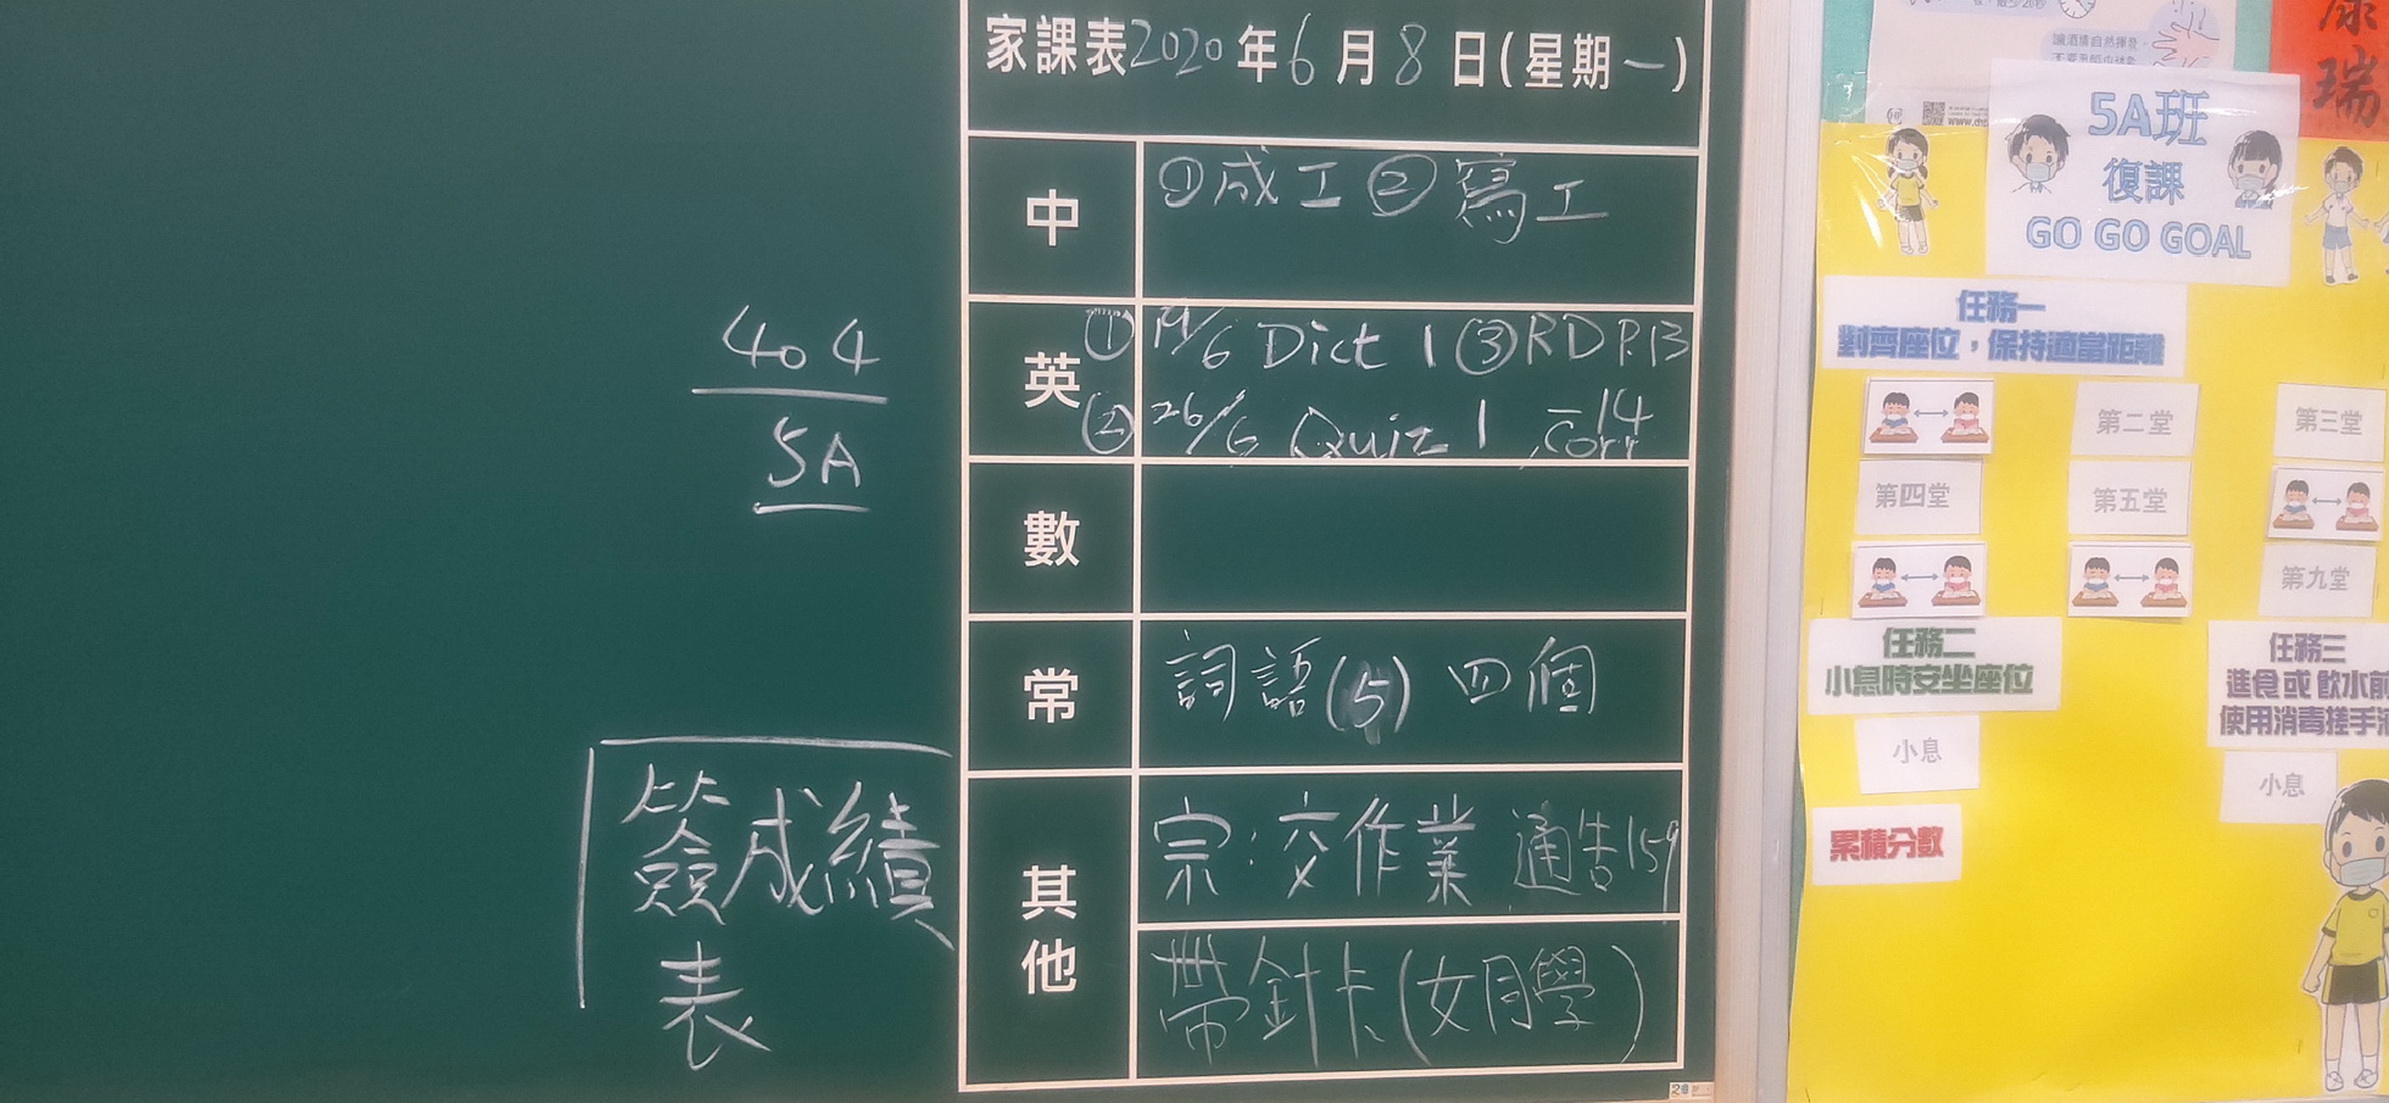 404
5A
簽成績
表
家課表2020年6月8日(星期一)
中
①成工②寫工
英
①19/6 Dict 1 ③RD P.13
②26/6 Quiz 1 -14
corr
數
常
詞語(5) 四個
其他
宗:交作業 通告159
帶針卡(女同學)
讓酒精自然揮發
康
瑞
5A班
復課
GO GO GOAL
任務一
對齊座位，保持適當距離
第二堂
第三堂
第四堂
第五堂
第九堂
任務二
小息時安坐座位
小息
任務三
進食或飲水前
使用消毒搓手液
小息
累積分數